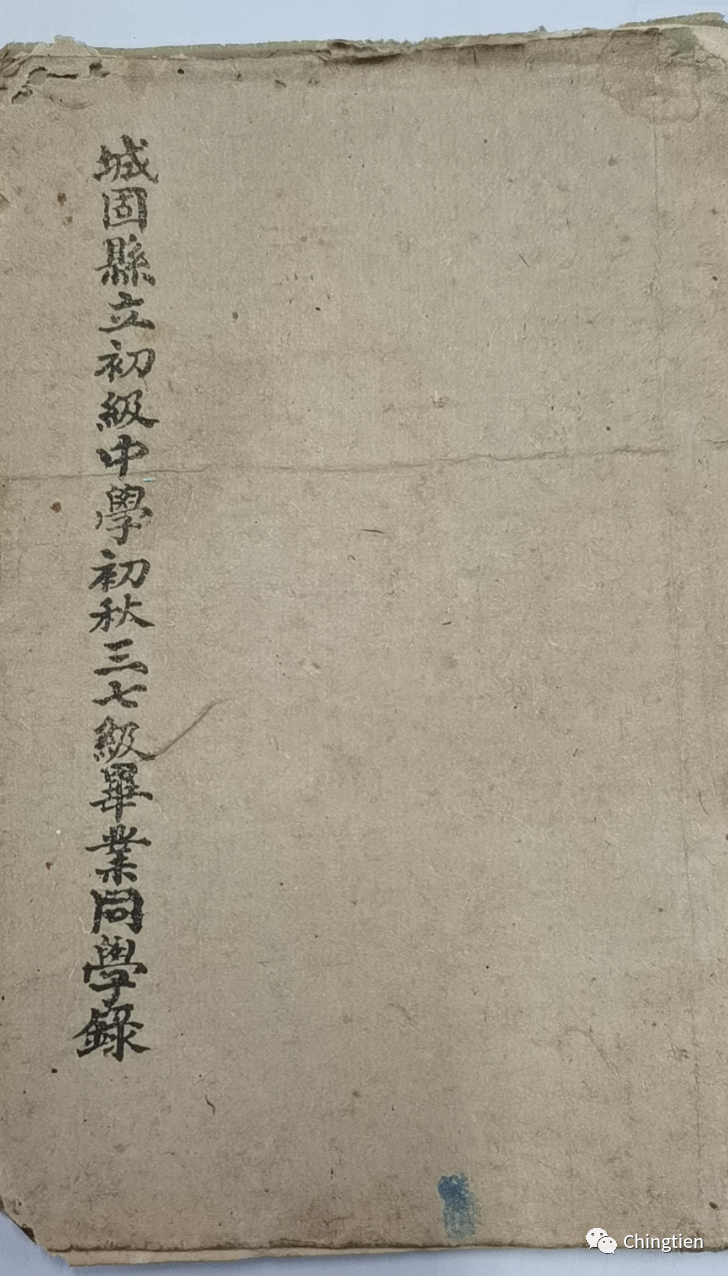 城固縣立初級中學初秋三七級畢業同學錄
Chingtien